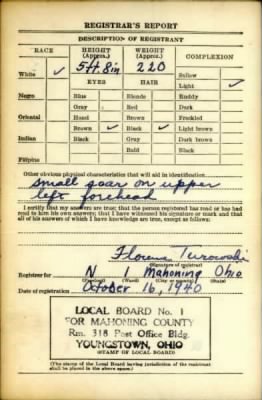 REGISTRAR'S REPORT
DESCRIPTION OF REGISTRANT
RACE HEIGHT (Approx.) WEIGHT (Approx.) COMPLEXION
5 ft. 8 in 220 Sallow
White ✓ EYES HAIR Light ✓
Negro Blue Blonde Ruddy
Gray Red Dark
Oriental Hazel Brown Freckled
Brown ✓ Black ✓ Light brown
Indian Black Gray Dark brown
Bald Black
Filipino
Other obvious physical characteristics that will aid in identification
small scar on upper
left forehead
I certify that my answers are true; that the person registered has read or has had
read to him his own answers; that I have witnessed his signature or mark and that
all of his answers of which I have knowledge are true, except as follows:
Florence
(Signature of registrar)
Registrar for N 1 Mahoning Ohio
(Precinct) (Ward) (City or county) (State)
Date of registration October 16, 1940
LOCAL BOARD No. 1
FOR MAHONING COUNTY
Rm. 318 Post Office Bldg.
YOUNGSTOWN, OHIO
(STAMP OF LOCAL BOARD)
(The stamp of the Local Board having jurisdiction of the registrant
shall be placed in the above space.)